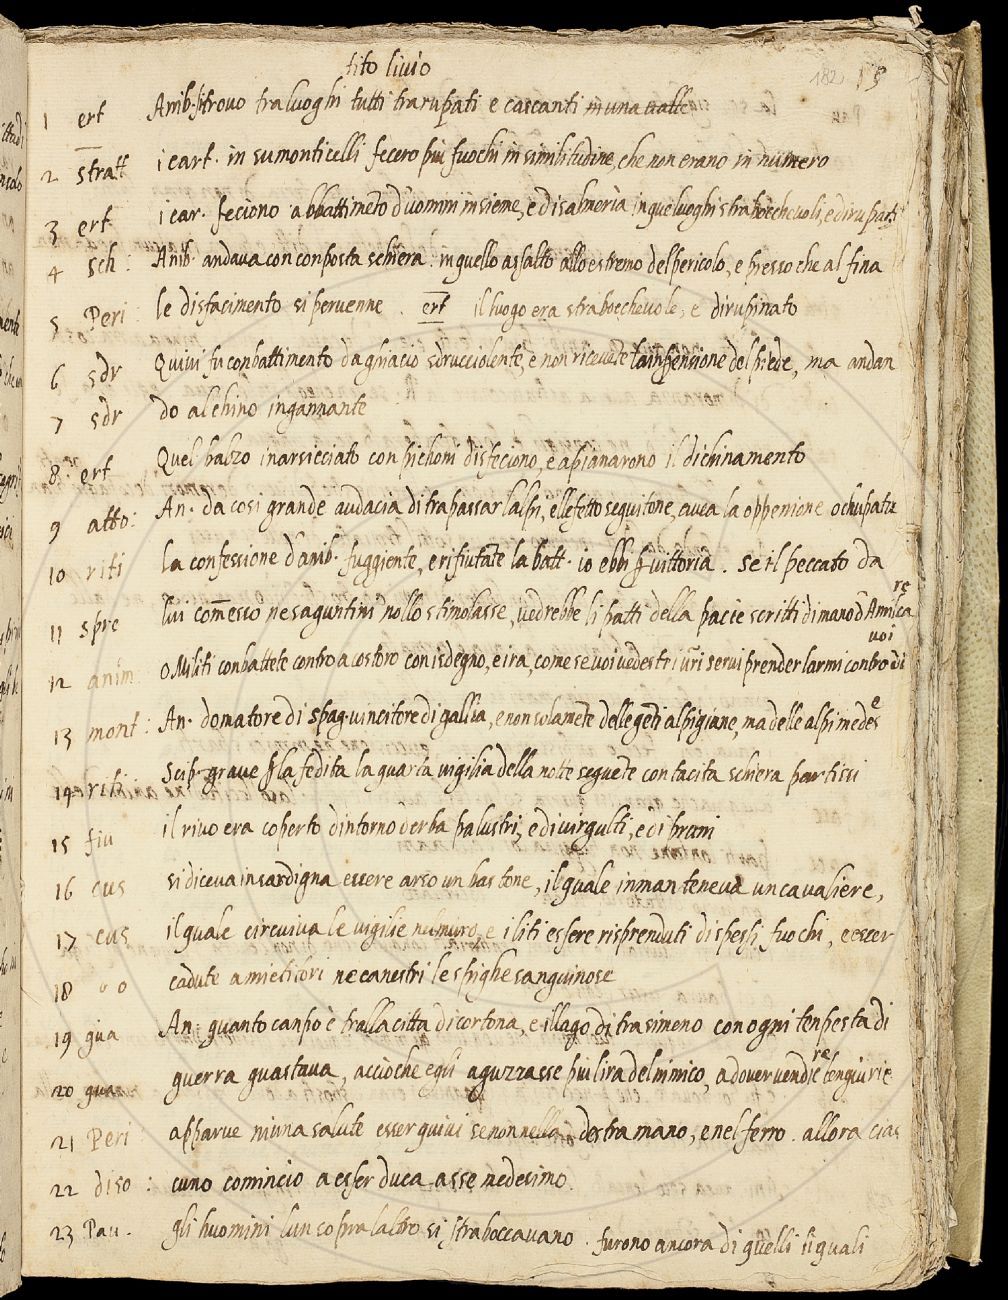 tito liuio
182 19
1 ert Anib. si trouo tra luoghi tutti trarupati e cascanti in una ualle
2 stratt i cart. in su monticelli fecero piu fuochi in similitudine, che non erano in numero
3 ert i car. feciono abbattimeto d'uomini insieme, e di salmeria in que luoghi straboccheuoli, e dirupati
4 sch: Anib. andaua con conposta schiera. in quello assalto allo estremo del pericolo, e presso che al fina
5 Peri: le disfacimento si peruenne. ert il luogo era straboccheuole, e dirupinato
6 sdr Quiui fu conbattimento da ghiacio sdrucciolente, e non riceuete la inpensione del piede, ma andan
7 sdr do al chino ingannante
8. ert Quel balzo inarsicciato con pichoni disfeciono, e apianarono il dichinamento
9 atto: An. da cosi grande audacia di trapassar l'alpi, e lle fetto seguitone, auea la oppenione ochupata
10 riti la confessione d'anib. fuggiente, e rifiutate la batt. io ebbi p uittoria. se il peccato da
11 spre lui comesso ne saguntini nollo stimolasse, uedrebbe li patti della pacie scritti di mano d Amilca re
12 anim: o Militi conbattete contro a costoro con isdegno, e ira, come se uoi uedesti i uri serui prender larmi contro di uoi
13 mont: An. domatore di spag. uincitore di gallia, e non solamete delle geti alpigiane, ma delle alpi medes e
14 riti: Scip. graue p la fedita la quarta uigilia della notte seguete con tacita schiera partissi
15 fiu il riuo era coperto dintorno d'erba palustri, e di uirgulti, e di pruni
16 cus si diceua in sardigna essere arso un bastone, il quale in man teneua un caualiere,
17 cus il quale circuiua le uigilie nel muro, e i liti essere risprenduti di spessi fuochi, e esser
18 oo cadute a mietitori ne canestri le spighe sanguinose
19 gua An. quanto canpo è tralla citta di cortona, e il lago di trasimeno con ogni tenpesta di
20 gua guerra guastaua, acciò che egli aguzzasse piu lira del nimico, a douer uendi re le ngiurie
21 Peri apparue niuna salute esser quiui se non nella destra mano, e nel ferro. allora cias
22 diso: cuno comincio a esser duca a sse medesimo.
23 Pau. gli huomini lun sopra laltro si straboccauano. furono ancora di quelli i quali